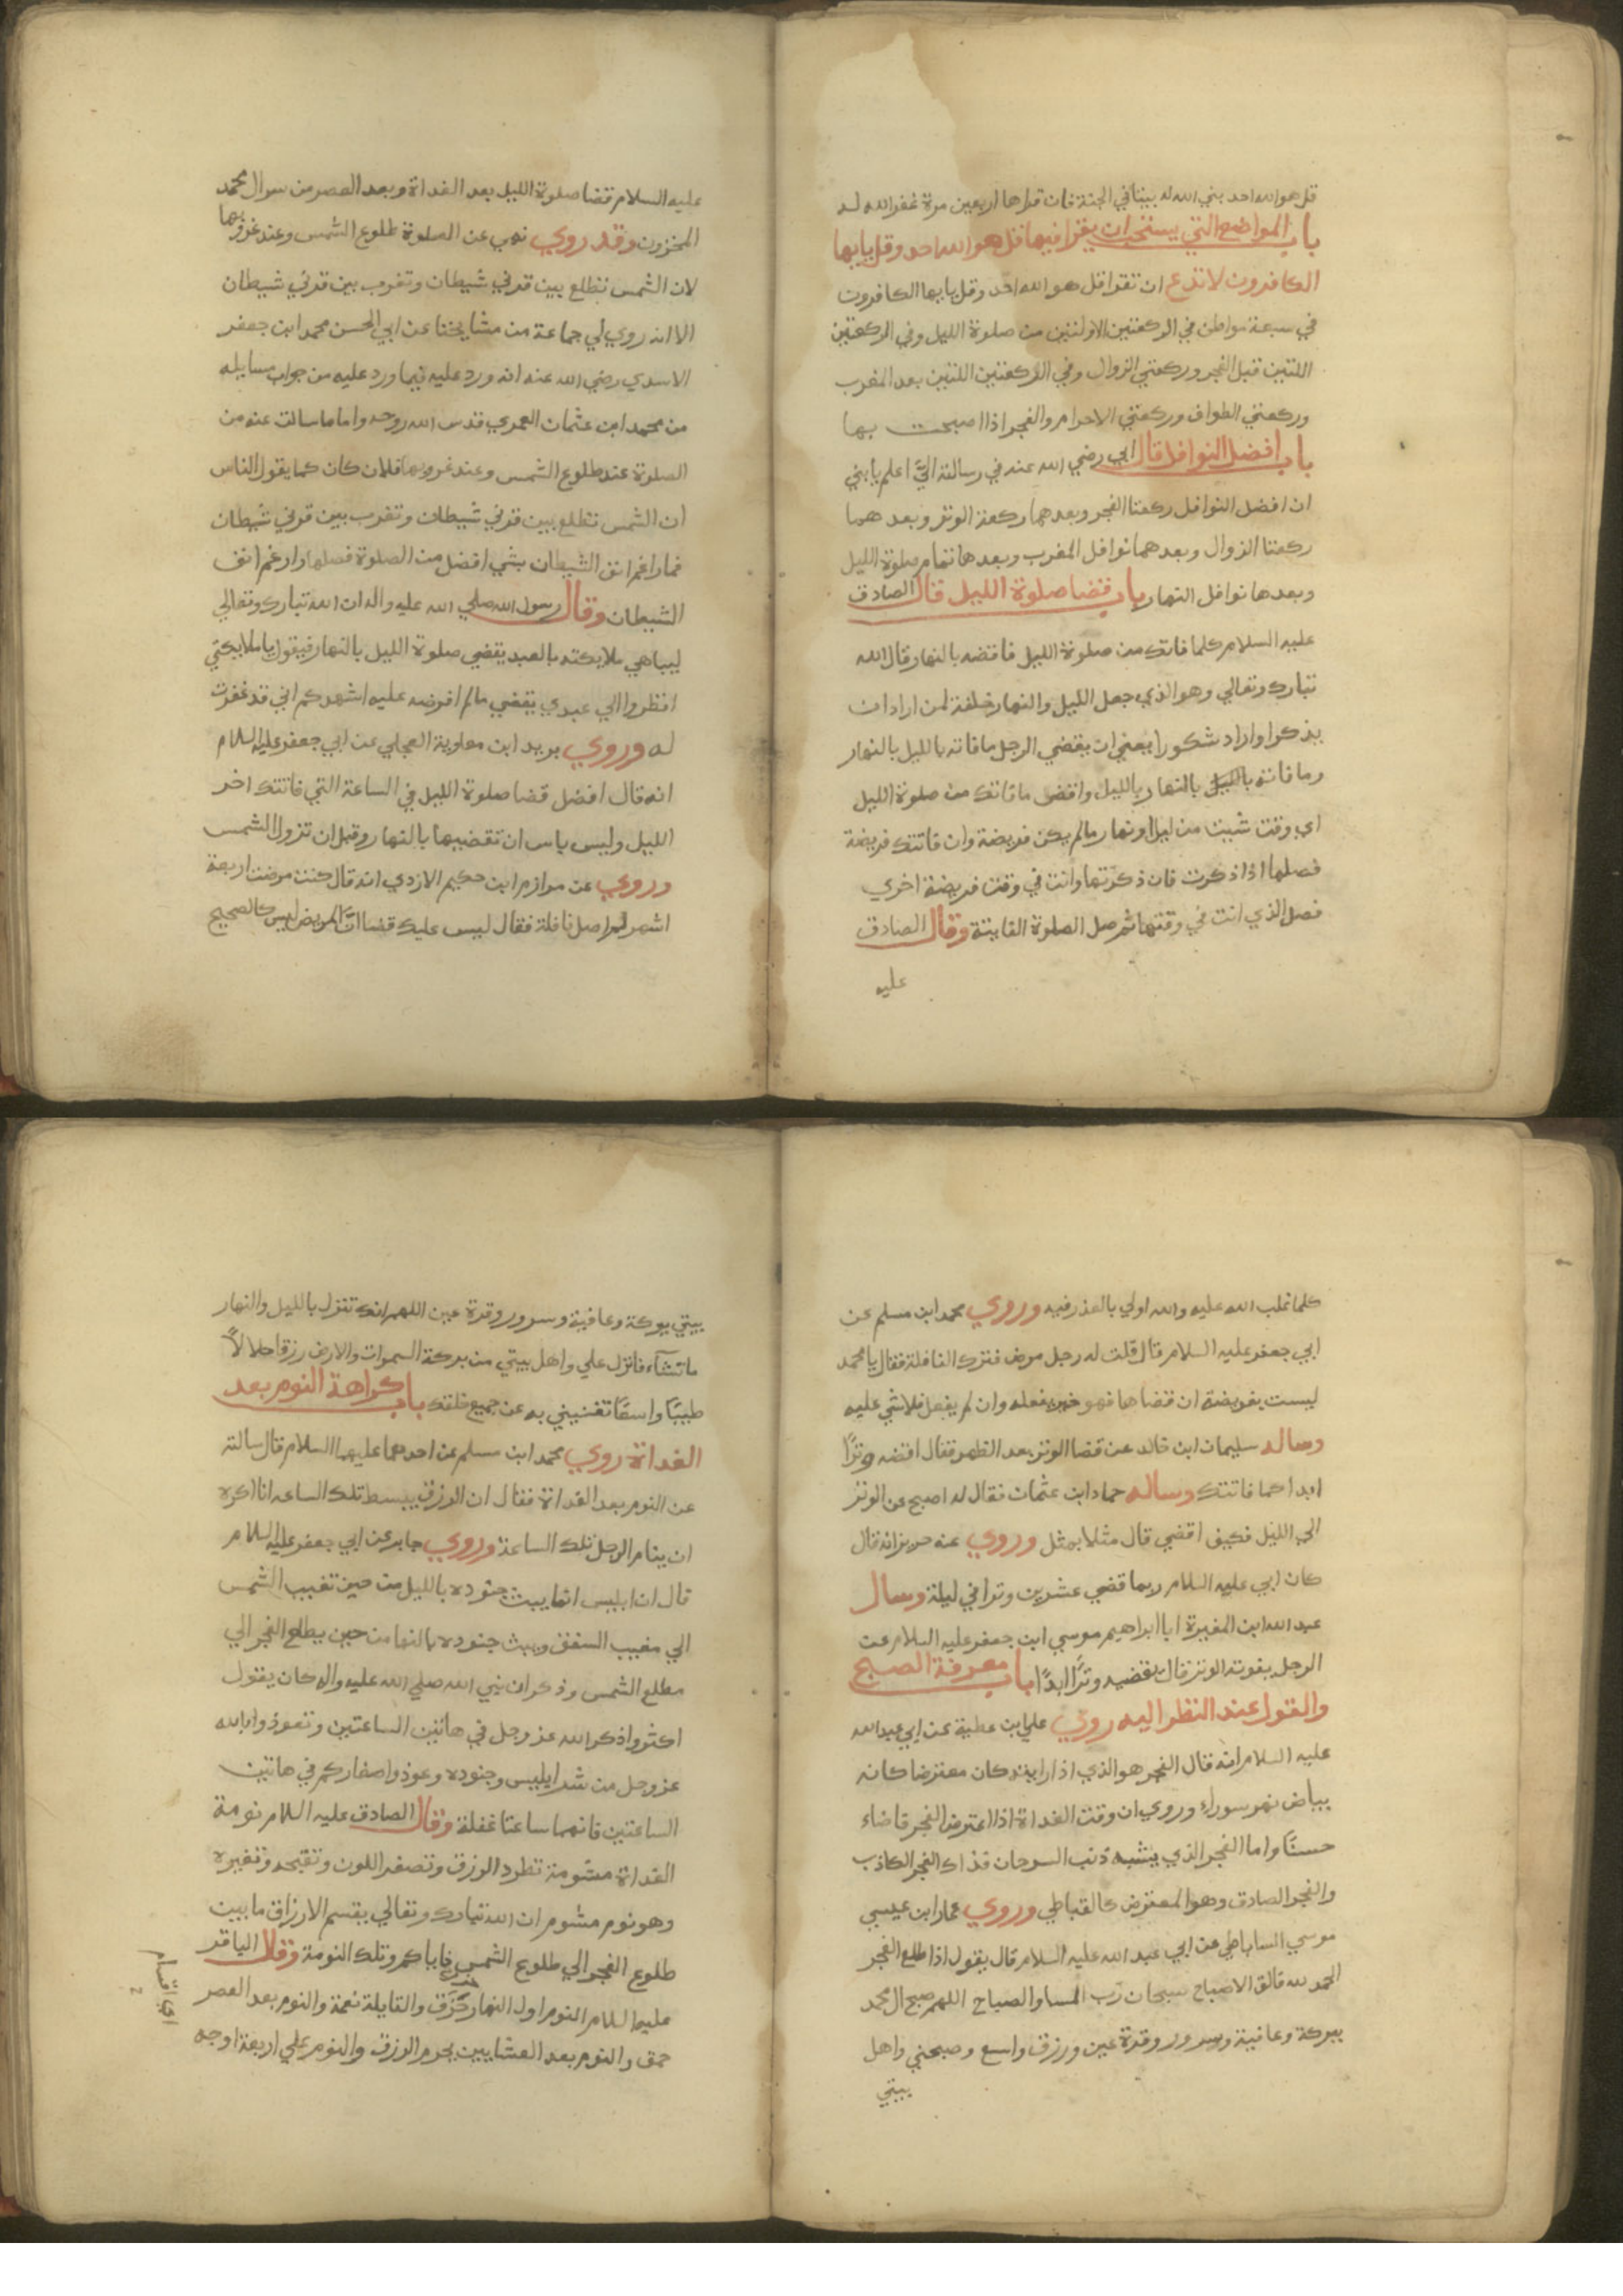 قل هو الله احد بني الله له بيتا في الجنة فان قراها اربعين مرة غفر الله له
باب المواضع التي يستحب ان يقرا فيها قل هو الله احد وقل يايها
الكافرون لا تدع ان تقرا قل هو الله احد وقل يايها الكافرون
في سبعة مواطن في الركعتين الاولتين من صلوة الليل وفي الركعتين
اللتين قبل الفجر وركعتي الزوال وفي الركعتين اللتين بعد المغرب
وركعتي الطواف وركعتي الاحرام والفجر اذا اصبحت بها
باب افضل النوافل قال ابي رضي الله عنه في رسالته اليَّ اعلم يابني
ان افضل النوافل ركعتا الفجر وبعدهما ركعة الوتر وبعدهما
ركعتا الزوال وبعدهما نوافل المغرب وبعدها تمام صلوة الليل
وبعدها نوافل النهار باب قضا صلوة الليل قال الصادق
عليه السلام كلما فاتك من صلوة الليل فاقضه بالنهار قال الله
تبارك وتعالي وهو الذي جعل الليل والنهار خلفة لمن اراد ان
يذكر او اراد شكورا يعني ان يقضي الرجل ما فاته بالليل بالنهار
وما فاته بالليل بالنهار بالليل واقض ما فاتك من صلوة الليل
اي وقت شيت من ليل او نهار مالم يكن فريضة وان فاتتك فريضة
فصلها اذا ذكرت فان ذكرتها وانت في وقت فريضة اخري
فصل الذي انت في وقتها ثم صل الصلوة الفايتة وقال الصادق
عليه
عليه السلام قضا صلوة الليل بعد الغداة وبعد العصر من سر ال محمد
المخزون وقد روي نهي عن الصلوة طلوع الشمس وعند غروبها
لان الشمس تطلع بين قرني شيطان وتغرب بين قرني شيطان
الا انه روي لي جماعة من مشايخنا عن ابي الحسن محمد ابن جعفر
الاسدي رضي الله عنه انه ورد عليه فيما ورد عليه من جواب مسايله
من محمد ابن عثمان العمري قدس الله روحه واما ما سالت عنه من
الصلوة عند طلوع الشمس وعند غروبها فلان كان كما يقول الناس
ان الشمس تطلع بين قرني شيطان وتغرب بين قرني شيطان
فما راغم انف الشيطان بشي افضل من الصلوة فصلها وارغم انف
الشيطان وقال رسول الله صلي الله عليه واله ان الله تبارك وتعالي
ليباهي ملايكته بالعبد يقضي صلوة الليل بالنهار فيقول يا ملايكتي
انظروا الي عبدي يقضي مالم افرضه عليه اشهدكم اني قد غفرت
له وروي بريد ابن معاوية العجلي عن ابي جعفر عليه السلام
انه قال افضل قضا صلوة الليل في الساعة التي فاتتك اخر
الليل وليس باس ان تقضيها بالنهار وقبل ان تزول الشمس
وروي عن مرازم ابن حكيم الازدي انه قال كنت مرضت اربعة
اشهر لم اصل نافلة فقال ليس عليك قضا انَّ المريض ليس كالصحيح
كلما غلب الله عليه والله اولي بالعذر فيه وروي محمد ابن مسلم عن
ابي جعفر عليه السلام قال قلت له رجل مرض فترك النافلة فقال يا محمد
ليست بفريضة ان قضاها فهو خير يفعله وان لم يفعل فلا شي عليه
وساله سليمان ابن خالد عن قضا الوتر بعد الظهر فقال اقضه وترًا
ابدا كما فاتتك وساله حماد ابن عثمان فقال له اصبح عن الوتر
الي الليل فكيف اقضي قال مثلا بمثل وروي عنه حريز انه قال
كان ابي عليه السلام ربما قضي عشرين وترا في ليلة وسال
عبد الله ابن المغيرة ابا ابراهيم موسي ابن جعفر عليه السلام عن
الرجل يفوته الوتر قال يقضيه وترًا ابدًا باب معرفة الصبح
والقول عند النظر اليه روي علي ابن عطية عن ابي عبد الله
عليه السلام انه قال الفجر هو الذي اذا رايته كان معترضا كانه
بياض نهر سوراء وروي ان وقت الغداة اذا اعترض الفجر فاضاء
حسنًا واما الفجر الذي يشبه ذنب السرحان فذاك الفجر الكاذب
والفجر الصادق وهو المعترض كالقباطي وروي عمار ابن عيسي
موسي الساباطي عن ابي عبد الله عليه السلام قال يقول اذا طلع الفجر
الحمد لله فالق الاصباح سبحان رب المسا والصباح اللهم صبح ال محمد
ببركة وعافية وسرور وقرة عين ورزق واسع وصبحني واهل
بيتي
بيتي ببركة وعافية وسرور وقرة عين اللهم انك تنزل بالليل والنهار
ما تشآء فانزل علي واهل بيتي من بركة السموات والارض رزقا حلالاً
طيبًا واسعًا تغنيني به عن جميع خلقك باب كراهة النوم بعد
الغداة روي محمد ابن مسلم عن احدهما عليهما السلام قال سالته
عن النوم بعد الغداة فقال ان الرزق يبسط تلك الساعه انا اكره
ان ينام الرجل تلك الساعة وروي جابر عن ابي جعفر عليه السلام
قال ان ابليس انما يبث جنوده بالليل من حين تغيب الشمس
الي مغيب السفق ويبث جنوده بالنها من حين يطلع الفجر الي
مطلع الشمس وذكر ان نبي الله صلي الله عليه واله كان يقول
اكثروا ذكر الله عز وجل في هاتين الساعتين وتعوذوا بالله
عز وجل من شر ابليس وجنوده وعوذوا صغاركم في هاتين
الساعتين فانهما ساعتا غفلة وقال الصادق عليه السلام نومة
الغداة مشومة تطرد الرزق وتصفر اللون وتقبحه وتغيره
وهو نوم مشوم ان الله تبارك وتعالي يقسم الارزاق ما بين
طلوع الفجر الي طلوع الشمس فاياكم وتلك النومة وقال الباقر
عليه السلام النوم اول النهار خرق والقايلة نعمة والنوم بعد العصر
حمق والنوم بعد العشايين يحرم الرزق والنوم علي اربعة اوجه
اي اقسام